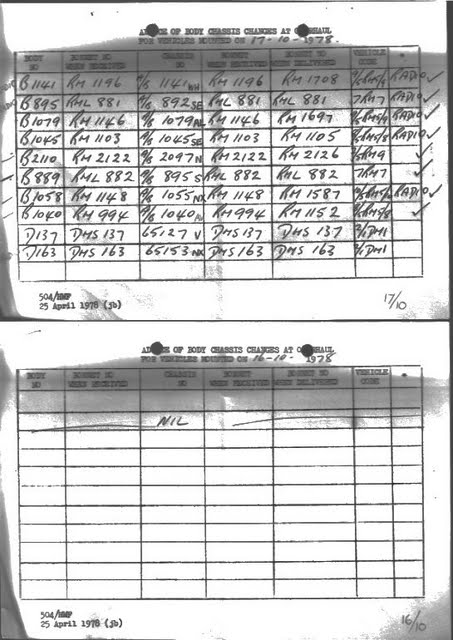 ADVICE OF BODY CHASSIS CHANGES AT OVERHAUL
FOR VEHICLES MOUNTED ON 17-10-1978.
BODY NO BONNET NO WHEN RECEIVED CHASSIS NO BONNET WHEN RECEIVED BONNET NO WHEN DELIVERED VEHICLE CODE
B1141 RM 1196 1141 WH RM 1196 RM 1708 RADIO ✓
B895 RML 881 892 SE RML 881 RML 881 7RM7 ✓
B1079 RM 1146 1079 RM 1146 RM 1697 RADIO ✓
B1045 RM 1103 1045 SE RM 1103 RM 1105 RADIO ✓
B2110 RM 2122 2097 N RM 2122 RM 2126 ✓
B889 RML 882 895 RML 882 RML 882 7RM7 ✓
B1058 RM 1148 1055 NX RM 1148 RM 1587 RADIO ✓
B1040 RM 994 1040 RM 994 RM 1152 ✓
D137 DMS 137 65127 V DMS 137 DMS 137 3/1DM1
D163 DMS 163 65153 NX DMS 163 DMS 163 3/1DM1
504/HMP
25 April 1978 (jb)
17/10
ADVICE OF BODY CHASSIS CHANGES AT OVERHAUL
FOR VEHICLES MOUNTED ON 16-10-1978
BODY NO BONNET NO WHEN RECEIVED CHASSIS NO BONNET WHEN RECEIVED BONNET NO WHEN DELIVERED VEHICLE CODE
NIL
504/HMP
25 April 1978 (jb)
16/10